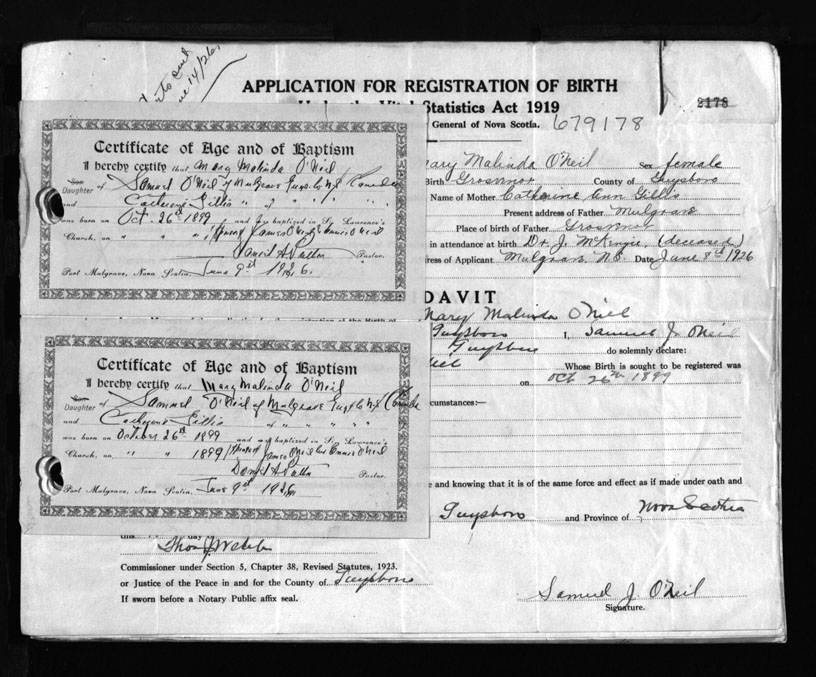 APPLICATION FOR REGISTRATION OF BIRTH
Under the Vital Statistics Act 1919
2178
General of Nova Scotia. 679178
Certificate of Age and of Baptism
I hereby certify that Mary Malinda O'Neil
Son
Daughter of Samuel O'Neil of Mulgrave
and Gillis
was born on Oct. 26th 1899 and was baptized in St. Lawrence's
Church, on
Pastor.
Port Mulgrave, Nova Scotia, June 9th 1926.
Mary Malinda O'Neil Sex female
Birth Grosvenor County of Guysboro
Name of Mother Catherine Ann Gillis
Present address of Father Mulgrave
Place of birth of Father Grosvenor
in attendance at birth Dr. J. McKenzie, (deceased)
of Applicant Mulgrave N.S. Date June 8th 1926
DAVIT
Mary Malinda O'Neil
Guysboro I, Samuel J. O'Neil
Guysboro do solemnly declare:
Whose Birth is sought to be registered was
on Oct 26th 1899
circumstances:
Certificate of Age and of Baptism
I hereby certify that Mary Malinda O'Neil
Son
Daughter of Samuel O'Neil of Mulgrave
and Gillis
was born on October 26th 1899 and was baptized in St. Lawrence's
Church, on " " 1899
Pastor.
Port Mulgrave, Nova Scotia, June 9th 1926
and knowing that it is of the same force and effect as if made under oath and
Guysboro and Province of Nova Scotia
this day of
Thos J. Webb
Commissioner under Section 5, Chapter 38, Revised Statutes, 1923.
or Justice of the Peace in and for the County of Guysboro
If sworn before a Notary Public affix seal.
Samuel J. O'Neil
Signature.